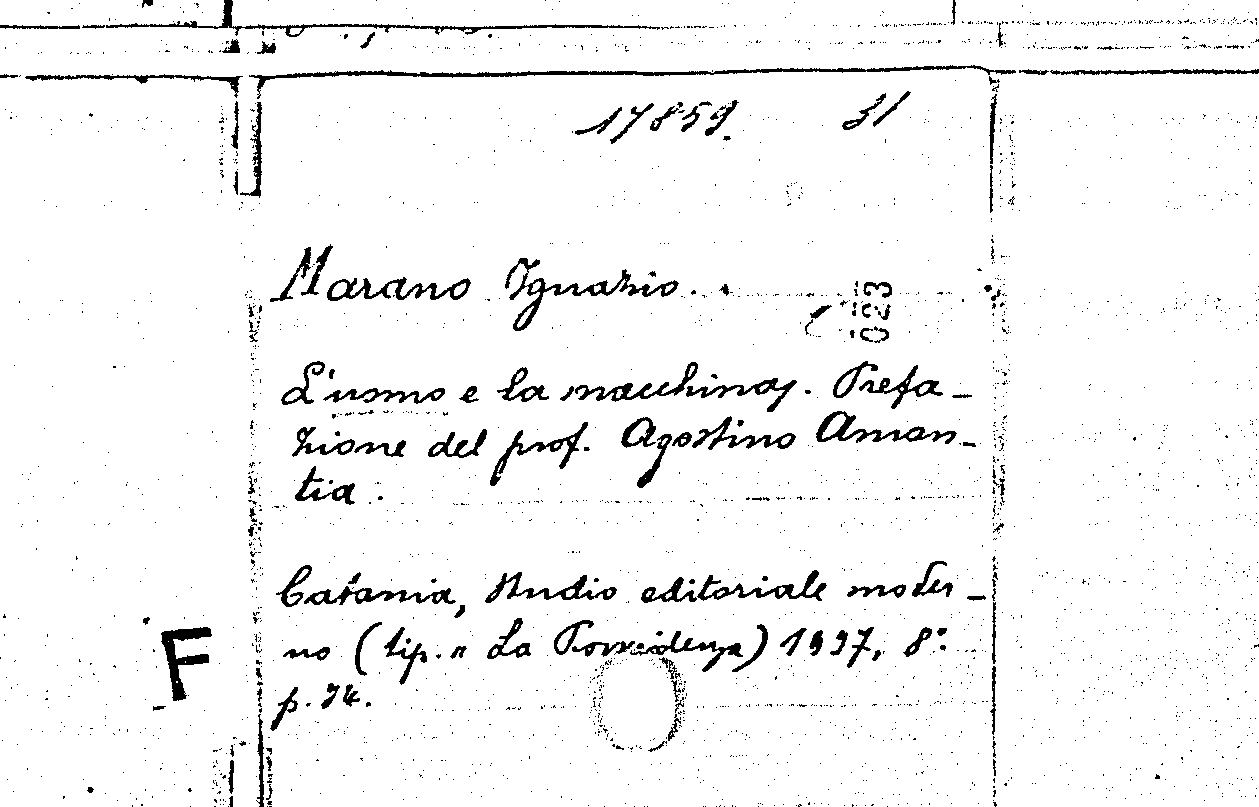 17859. 31
Marano Ignazio.
023
L'uomo e la macchina. Prefa-
zione del prof. Agostino Aman-
tia.
Catania, Studio editoriale moder-
no (tip. " La Provvidenza) 1937, 8°.
F
p. 74.